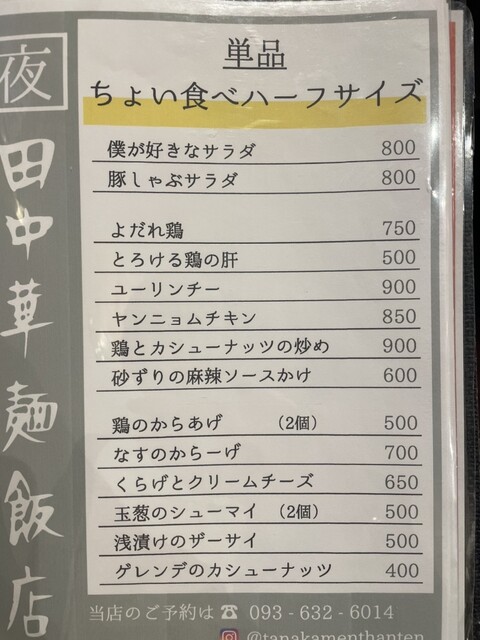 夜
田中華麺飯店
単品
ちょい食べハーフサイズ
僕が好きなサラダ 800
豚しゃぶサラダ 800
よだれ鶏 750
とろける鶏の肝 500
ユーリンチー 900
ヤンニョムチキン 850
鶏とカシューナッツの炒め 900
砂ずりの麻辣ソースかけ 600
鶏のからあげ (2個) 500
なすのからーげ 700
くらげとクリームチーズ 650
玉葱のシューマイ (2個) 500
浅漬けのザーサイ 500
ゲレンデのカシューナッツ 400
当店のご予約は ☎ 093 - 632 - 6014
@tanakamenthanten